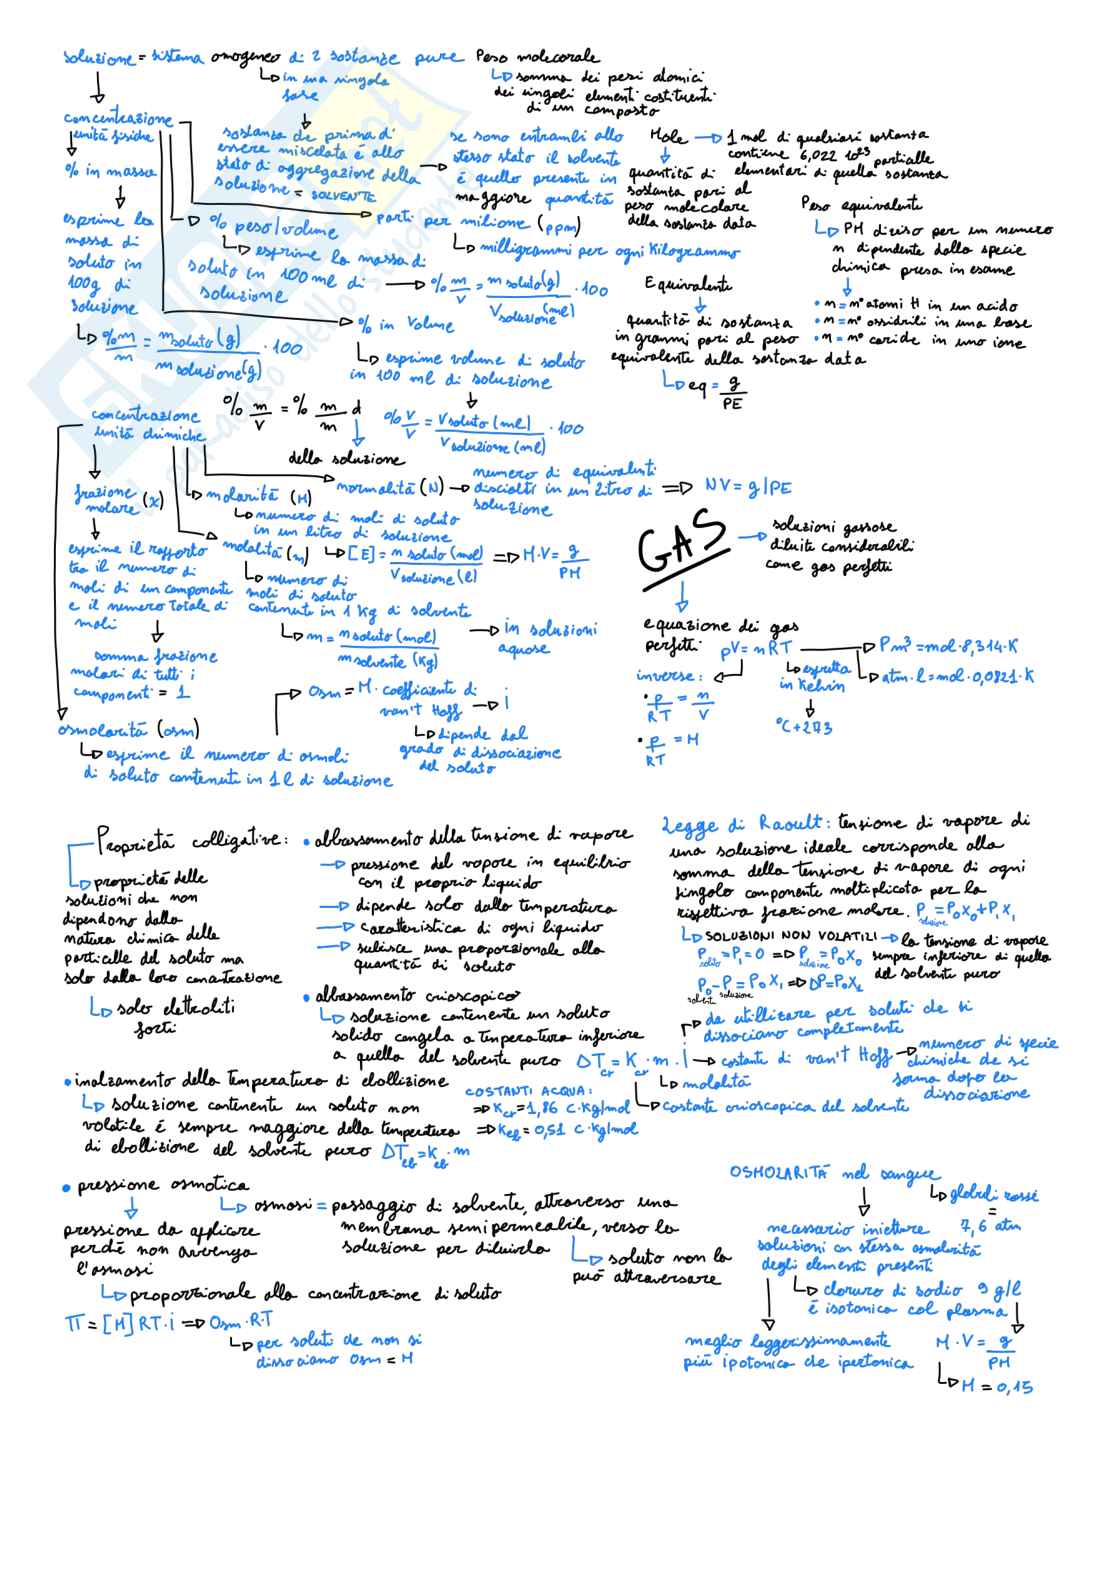 soluzione = sistema omogeneo di 2 sostanze pure
in una singola
fase
concentrazione
unità fisiche
% in massa
esprime la
massa di
soluto in
100g di
soluzione
%m/m = m soluto (g) / m soluzione (g) · 100
sostanza che prima di
essere miscelata è allo
stato di aggregazione della
soluzione = SOLVENTE
se sono entrambi allo
stesso stato il solvente
è quello presente in
maggiore quantità
parti per milione (ppm)
milligrammi per ogni Kilogrammo
% peso/volume
esprime la massa di
soluto in 100 ml di
soluzione
% m/v = m soluto (g) / V soluzione (ml) · 100
% in Volume
esprime volume di soluto
in 100 ml di soluzione
% v/v = V soluto (ml) / V soluzione (ml) · 100
% m/v = % m/m d
della soluzione
Peso molecorale
somma dei pesi atomici
dei singoli elementi costituenti
di un composto
Mole
1 mol di qualsiasi sostanza
contiene 6,022 10²³ particelle
elementari di quella sostanza
quantità di
sostanza pari al
peso molecolare
della sostanza data
Peso equivalente
PM diviso per un numero
n dipendente dalla specie
chimica presa in esame
• n = n° atomi H in un acido
• n = n° ossidrili in una base
• n = n° cariche in uno ione
Equivalente
quantità di sostanza
in grammi pari al peso
equivalente della sostanza data
eq = g / PE
concentrazione
unità chimiche
frazione
molare (x)
esprime il rapporto
tra il numero di
moli di un componente
e il numero totale di
moli
somma frazione
molari di tutti i
componenti = 1
molarità (M)
numero di moli di soluto
in un litro di soluzione
[E] = n soluto (mol) / V soluzione (l) ⇒ M·V = g / PM
normalità (N)
numero di equivalenti
disciolti in un litro di
soluzione
NV = g/PE
molalità (m)
numero di
moli di soluto
contenute in 1 Kg di solvente
m = n soluto (mol) / m solvente (Kg)
in soluzioni
aquose
osmolarità (osm)
esprime il numero di osmoli
di soluto contenuti in 1 l di soluzione
Osm = M · coefficiente di
van't Hoff → i
dipende dal
grado di dissociazione
del soluto
GAS
soluzioni gassose
diluite considerabili
come gas perfetti
equazione dei gas
perfetti pV = nRT
P m³ = mol · 8,314 · K
atm · l = mol · 0,0821 · K
espretta
in Kelvin
°C + 273
inverse:
• p/RT = n/V
• p/RT = M
Proprietà colligative:
proprietà delle
soluzioni che non
dipendono dalla
natura chimica delle
particelle del soluto ma
solo dalla loro concentrazione
solo elettroliti
forti
• abbassamento della tensione di vapore
pressione del vapore in equilibrio
con il proprio liquido
dipende solo dalla temperatura
caratteristica di ogni liquido
subisce una proporzionale alla
quantità di soluto
• abbassamento crioscopico
soluzione contenente un soluto
solido congela a temperatura inferiore
a quella del solvente puro ΔTcr = Kcr · m · i
costante di van't Hoff
numero di specie
chimiche che si
forma dopo la
dissociazione
da utilizzare per soluti che si
dissociano completamente
molalità
costante crioscopica del solvente
Legge di Raoult: tensione di vapore di
una soluzione ideale corrisponde alla
somma della tensione di vapore di ogni
singolo componente moltiplicata per la
rispettiva frazione molare. P soluzione = P₀X₀ + P₁X₁
SOLUZIONI NON VOLATILI → la tensione di vapore
sempre inferiore di quella
del solvente puro
P soluto = P₁ = 0 ⇒ P soluzione = P₀X₀
P₀ solvente − P soluzione = P₀X₁ ⇒ ΔP = P₀X₂
• inalzamento della temperatura di ebollizione
soluzione contenente un soluto non
volatile è sempre maggiore della temperatura
di ebollizione del solvente puro ΔTeb = Keb · m
COSTANTI ACQUA:
⇒ Kcr = 1,86 C·Kg/mol
⇒ Keb = 0,51 C·Kg/mol
• pressione osmotica
osmosi = passaggio di solvente, attraverso una
membrana semipermeabile, verso la
soluzione per diluirla
soluto non la
può attraversare
pressione da applicare
perchè non avvenga
l'osmosi
proporzionale alla concentrazione di soluto
π = [M] RT · i ⇒ Osm · R·T
per soluti che non si
dissociano Osm = M
OSMOLARITÀ nel sangue
globuli rossi
=
7,6 atm
necessario iniettare
soluzioni con stessa osmolarità
degli elementi presenti
cloruro di sodio 9 g/l
è isotonica col plasma
M · V = g / PM
M = 0,15
meglio leggerissimamente
più ipotonica che ipertonica